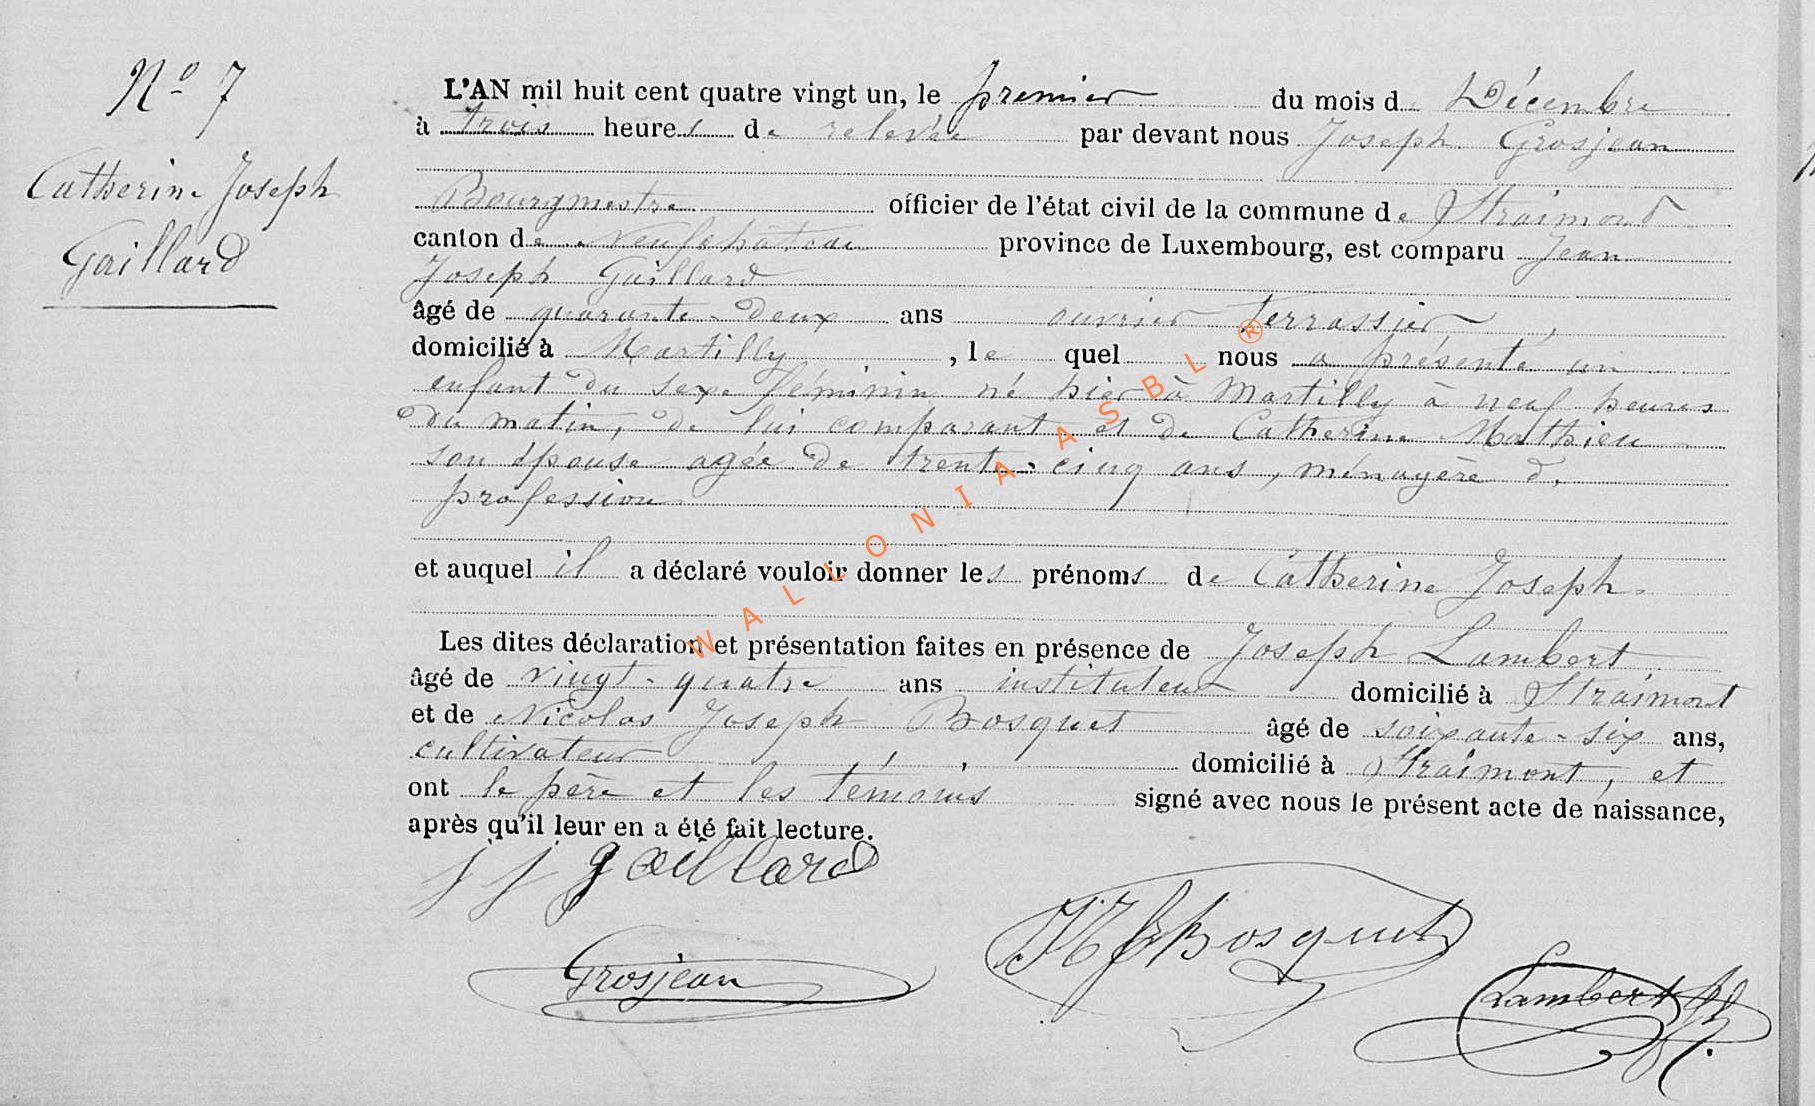 Nº 7
Catherine Joseph
Gaillard
L'AN mil huit cent quatre vingt un, le premier du mois de Décembre
à trois heures de relevée par devant nous Joseph Grosjean
Bourgmestre officier de l'état civil de la commune de Straimont
canton de Neufchâteau province de Luxembourg, est comparu Jean
Joseph Gaillard
âgé de quarante-deux ans ouvrier terrassier,
domicilié à Martilly, le quel nous a présenté un
enfant du sexe féminin né hier à Martilly à neuf heures
du matin, de lui comparant et de Catherine Mathieu
son épouse agée de trente-cinq ans, ménagère de
profession
et auquel il a déclaré vouloir donner les prénoms de Catherine Joseph.
Les dites déclaration et présentation faites en présence de Joseph Lambert
âgé de vingt-quatre ans instituteur domicilié à Straimont
et de Nicolas Joseph Bosquet âgé de soixante-six ans,
cultivateur, domicilié à Straimont, et
ont le père et les témoins signé avec nous le présent acte de naissance,
après qu'il leur en a été fait lecture.
j j gaillard
Grosjean
NJ Bosquet
Lambert Jh.
WALLONIA ASBL ®